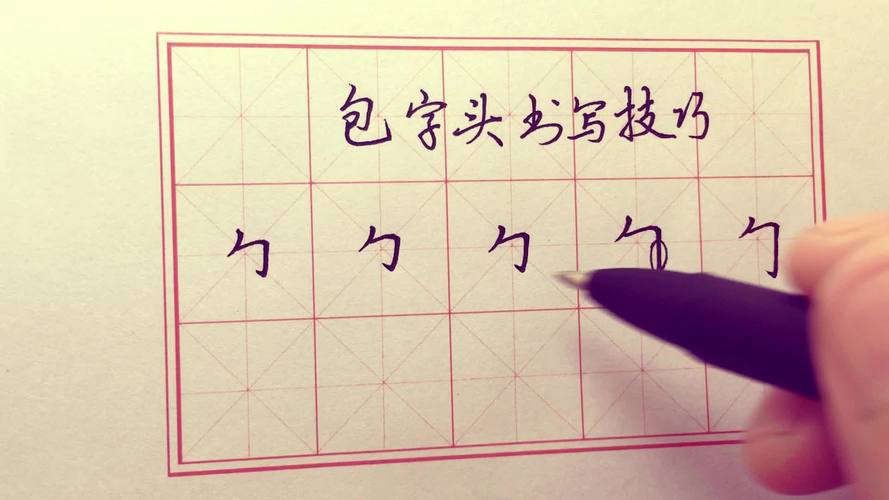 包字头书写技巧
勹 勹 勹 勹 勹